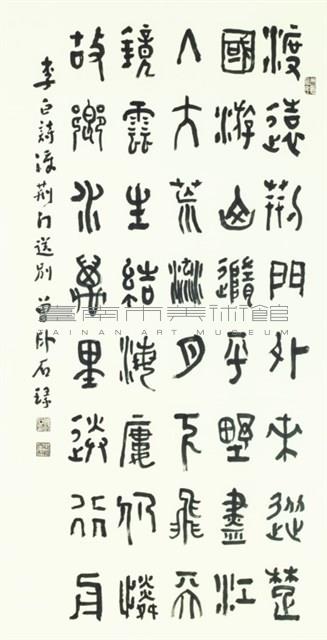 渡遠荊門外來從楚
國游山隨平野盡江
入大荒流月下飛天
鏡雲生結海廔仍憐
故鄉水萬里送行舟
李白詩渡荊門送別 曾卧石錄
臺南市美術館
TAINAN ART MUSEUM